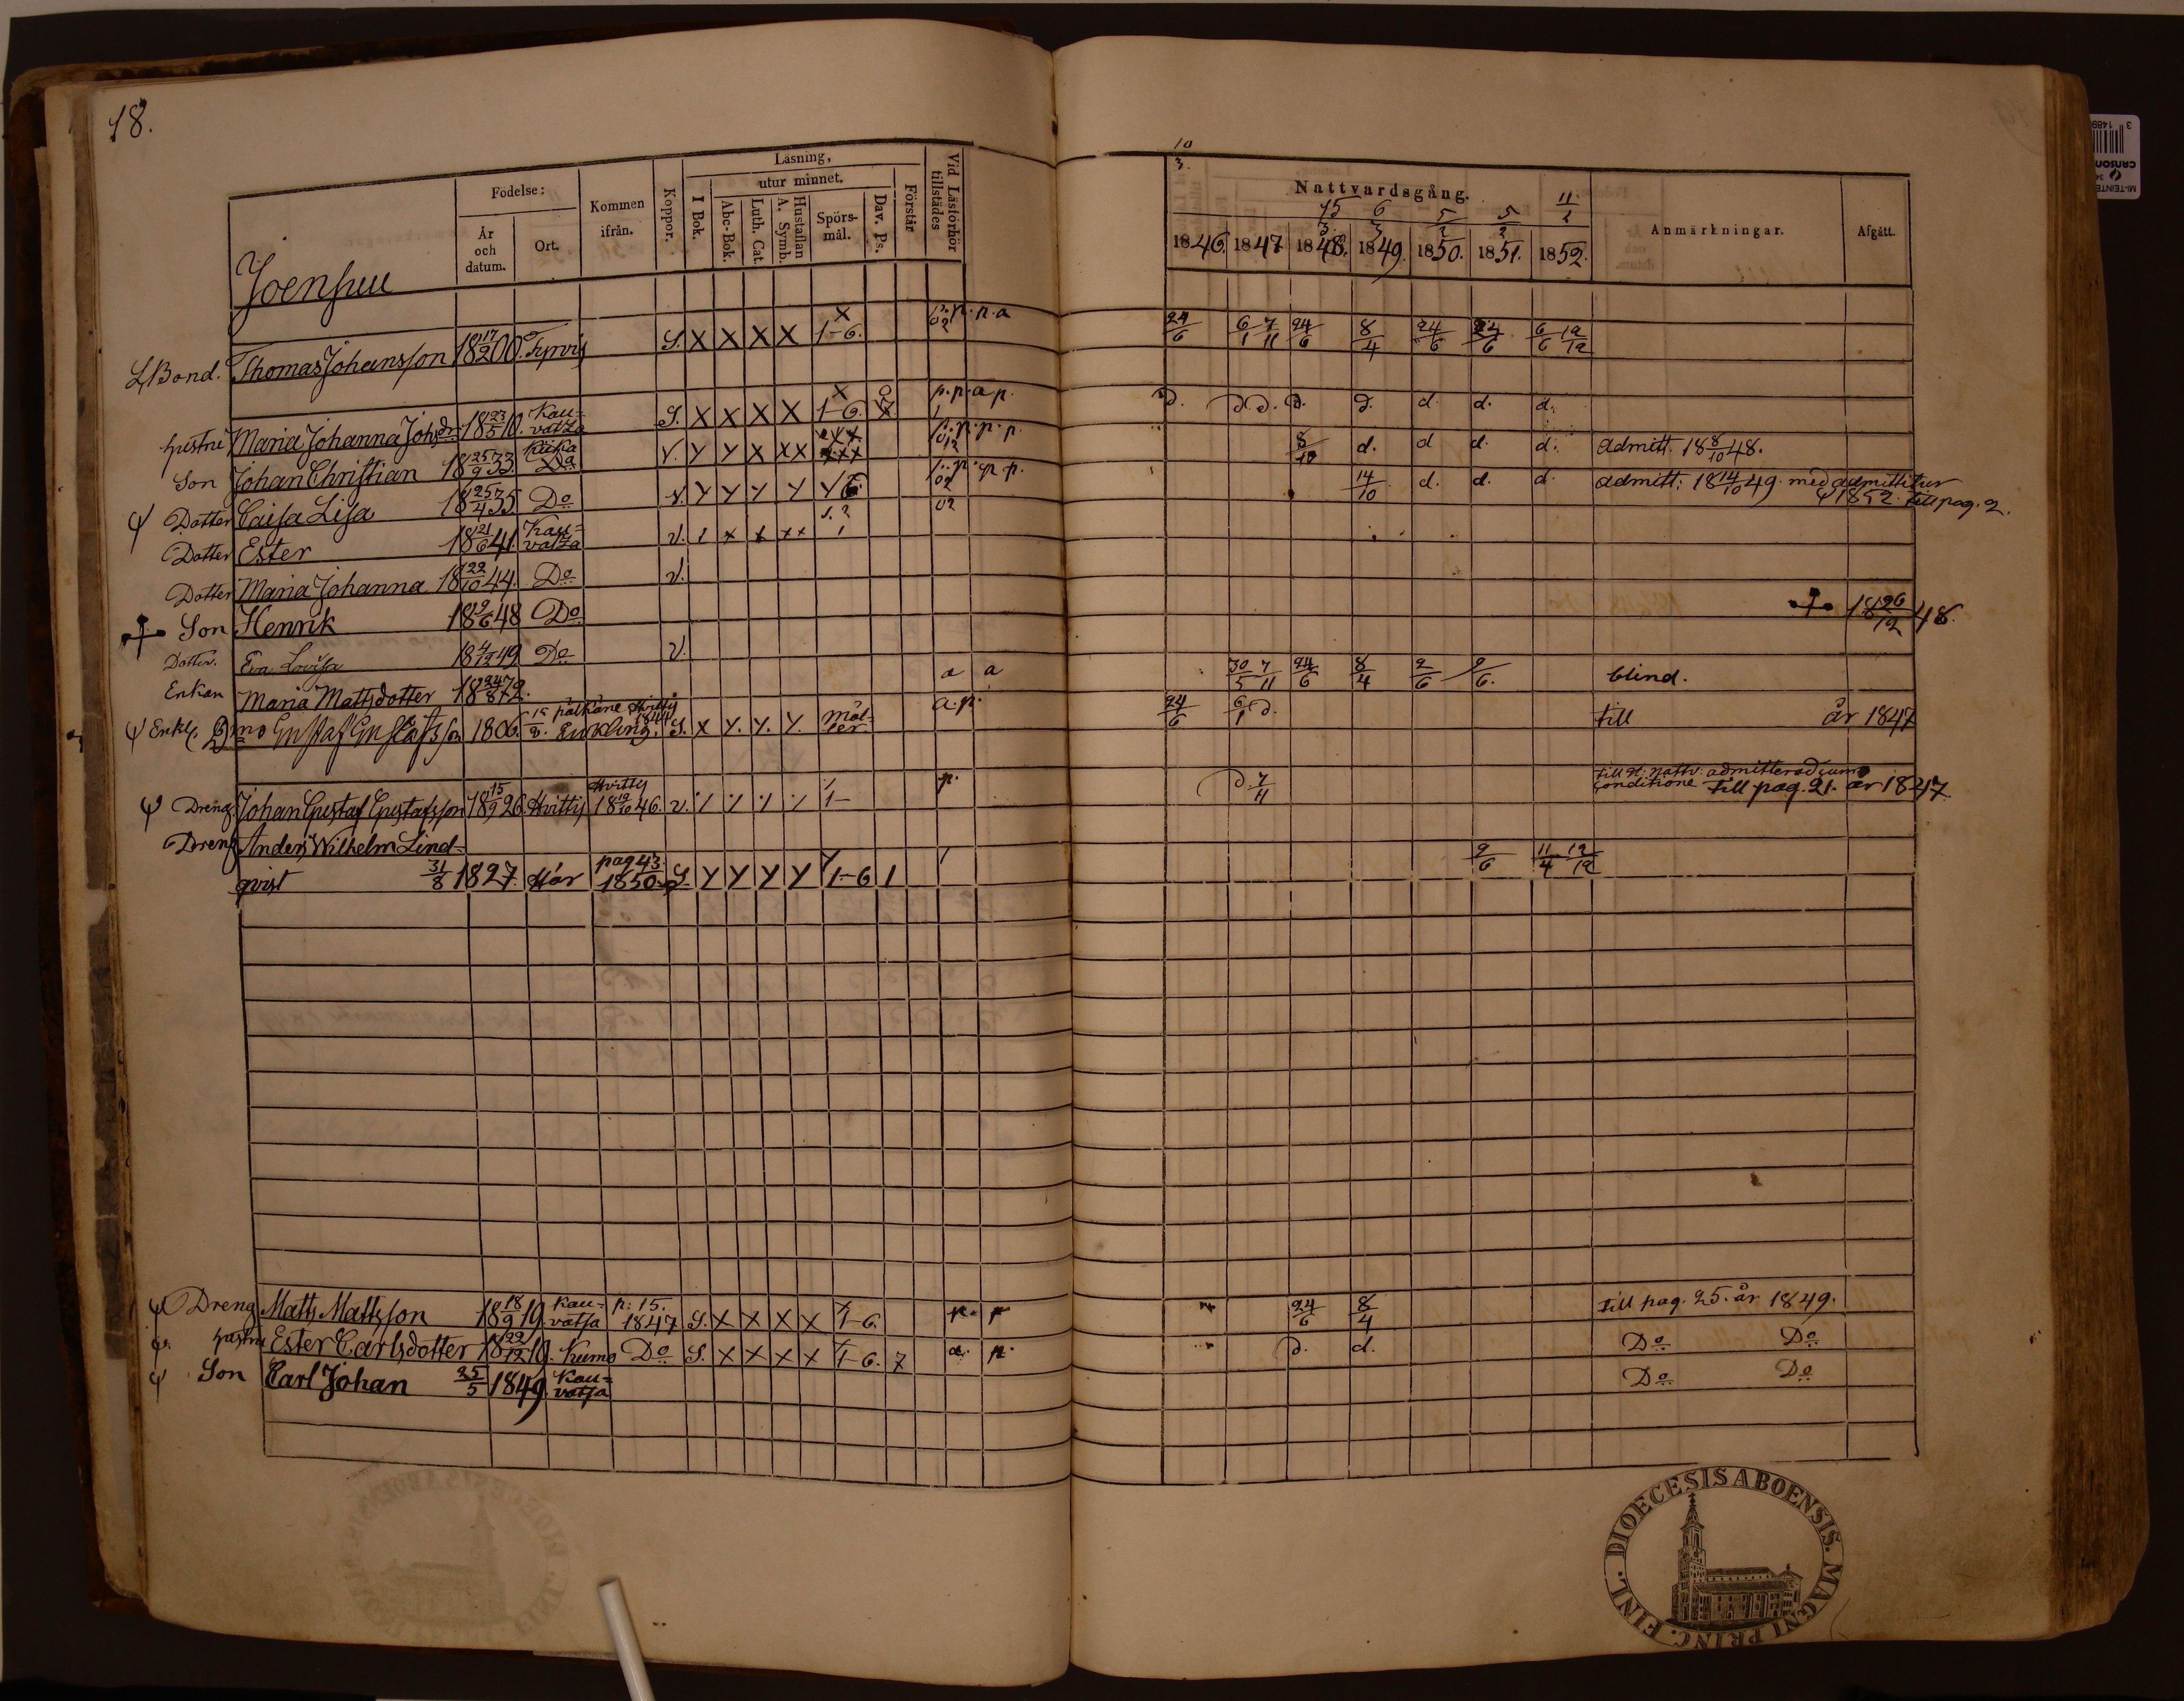 18.
Joensuu
Födelse:
År och datum.
Ort.
Kommen ifrån.
Koppor.
Läsning,
I Bok.
utur minnet.
Abc-Bok.
Luth. Cat.
Hustaflan A. Symb.
Spörsmål.
Dav. Ps.
Förstår
Vid Läsförhör tillstädes
10
3.
Nattvardsgång.
15/3 6/3 5/2 5/2 11/2
1846. 1847 1848. 1849. 1850. 1851. 1852.
Anmärkningar.
Afgått.
L Bond. Thomas Johansson 18 17/2 00. Tyrvis S. X X X X X 1-6. p. p. a 24/6 6/1 7/11 24/6 8/4 24/6 24/6 6/6 12/12
hustru Maria Johanna Johsdr 18 23/5 10. Kauvatsa S. X X X X X 1-6. p. p. a p. D. D. D. D. D. d. d. d.
Son Johan Christian 18 25/9 33. V. Y Y X XX p. p. p. 8/10 d. d d. d. Admitt. 18 8/10 48.
ψ Dotter Caisa Lisa 18 25/4 35 Do v. Y Y Y Y Y 6. p. p. p. 14/10 d. d. d. admitt: 18 14/10 49. med admittitur
ψ 1852. till pag. 2.
Dotter Ester 18 21/6 41. Kauvatsa v. 1 x x xx 1 02
Dotter Maria Johanna 18 22/10 44. Do v.
Son Henrik 18 12/6 48 Do 18 26/12 48.
Dotter. Eva Lovisa 18 4/12 49 Do v.
Enkan Maria Mattsdotter 18 24/8 72. a a 30/5 7/11 24/6 8/4 2/6 9/6. blind.
ψ Enkl. Gustaf Gustafsson 1806. Pälkäne Hvittis 1844 Enkling. S. X Y. Y. Y. a. p. 24/6 6/1 D. till år 1847
ψ Dreng. Johan Gustaf Gustafsson 18 15/9 26. Hvittis Hvittis 18 19/10 46. v. 1- p. D. 7/11 till H. Nattv: admitterad sum
conditione till pag. 21. år 1847
Dreng Anders Wilhelm Lind=
qvist 31/8 1827. Här pag 43. 1850. S. Y Y Y Y Y 1-6 1 1 9/6 11/4 12/12
ψ Dreng Matts Mattsson 18 18/9 19. Kauvatsa p: 15. 1847 S. X X X X 1-6. p. p 24/6 8/4 till pag. 25. år 1849.
ψ. hustru Ester Carlsdotter 18 22/12 19. Kumo Do S. X X X X 1-6. 7 a. p. D. d. Do Do
ψ Son Carl Johan 25/5 1849. Kauvatsa Do Do
DIOECESIS ABOENSIS. MAGNI PRINC. FINL.